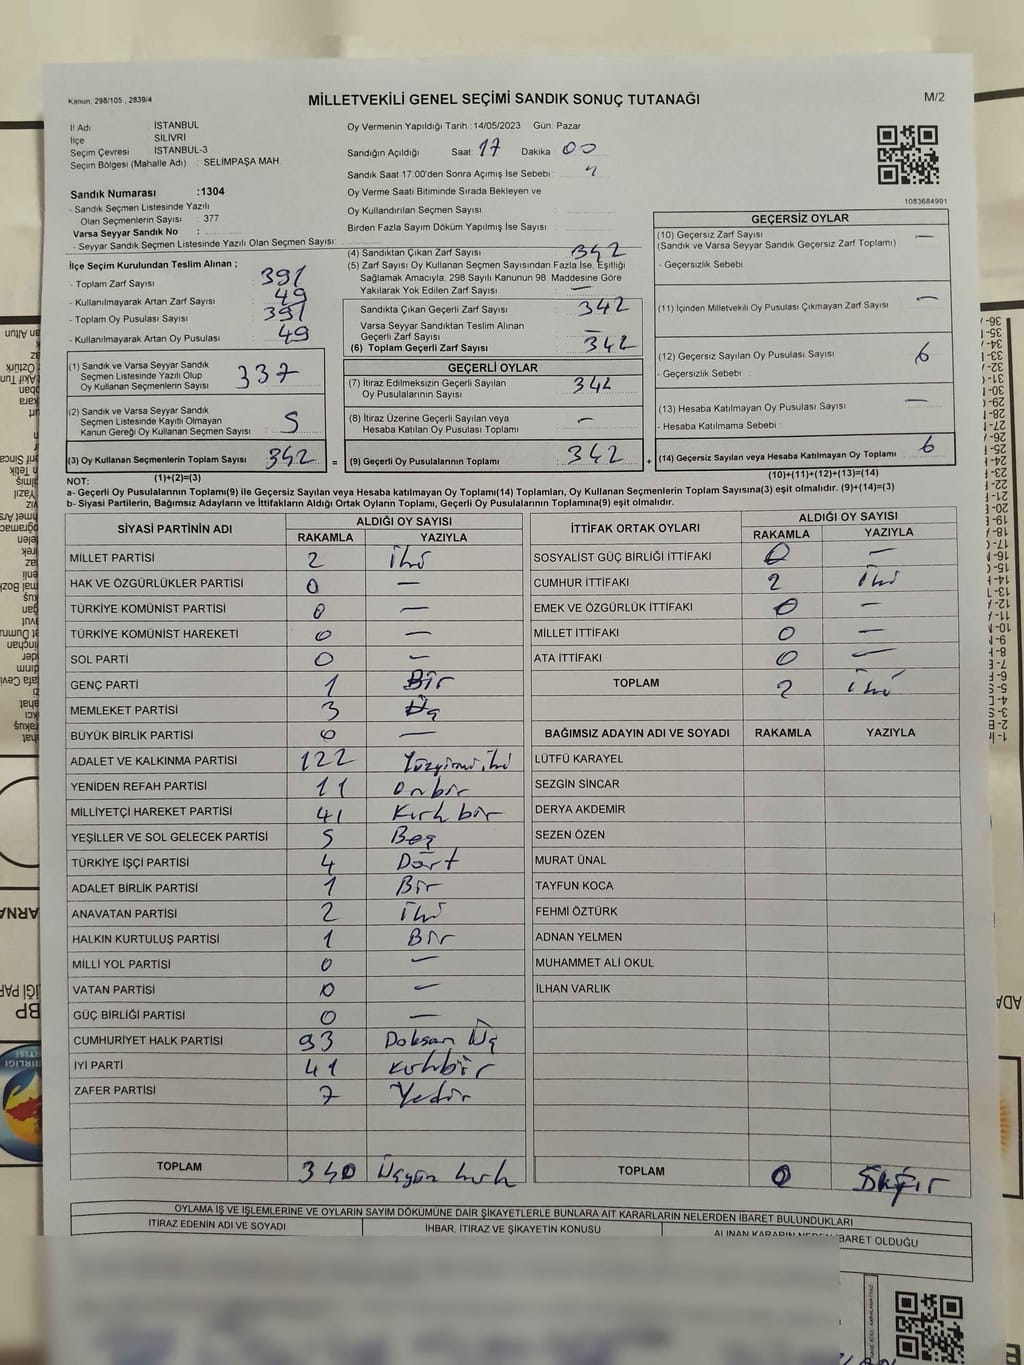 Kanun. 298/105 , 2839/4
MİLLETVEKİLİ GENEL SEÇİMİ SANDIK SONUÇ TUTANAĞI
M/2
İl Adı : İSTANBUL
İlçe : SİLİVRİ
Seçim Çevresi : İSTANBUL-3
Seçim Bölgesi (Mahalle Adı) : SELİMPAŞA MAH.
Oy Vermenin Yapıldığı Tarih :14/05/2023 Gün: Pazar
Sandığın Açıldığı Saat: 17 Dakika 00
Sandık Saat 17:00'den Sonra Açımış İse Sebebi :
Oy Verme Saati Bitiminde Sırada Bekleyen ve
Oy Kullandırılan Seçmen Sayısı :
Birden Fazla Sayım Döküm Yapılmış İse Sayısı :
1083684991
Sandık Numarası :1304
- Sandık Seçmen Listesinde Yazılı
Olan Seçmenlerin Sayısı : 377
Varsa Seyyar Sandık No :
- Seyyar Sandık Seçmen Listesinde Yazılı Olan Seçmen Sayısı:
İlçe Seçim Kurulundan Teslim Alınan ;
- Toplam Zarf Sayısı : 391
- Kullanılmayarak Artan Zarf Sayısı : 49
- Toplam Oy Pusulası Sayısı : 391
- Kullanılmayarak Artan Oy Pusulası : 49
(1) Sandık ve Varsa Seyyar Sandık
Seçmen Listesinde Yazılı Olup
Oy Kullanan Seçmenlerin Sayısı : 337
(2) Sandık ve Varsa Seyyar Sandık
Seçmen Listesinde Kayıtlı Olmayan
Kanun Gereği Oy Kullanan Seçmen Sayısı : 5
(3) Oy Kullanan Seçmenlerin Toplam Sayısı : 342 =
(1)+(2)=(3)
(4) Sandıktan Çıkan Zarf Sayısı : 342
(5) Zarf Sayısı Oy Kullanan Seçmen Sayısından Fazla İse, Eşitliği
Sağlamak Amacıyla, 298 Sayılı Kanunun 98. Maddesine Göre
Yakılarak Yok Edilen Zarf Sayısı : —
Sandıkta Çıkan Geçerli Zarf Sayısı : 342
Varsa Seyyar Sandıktan Teslim Alınan
Geçerli Zarf Sayısı : —
(6) Toplam Geçerli Zarf Sayısı : 342
GEÇERLİ OYLAR
(7) İtiraz Edilmeksizin Geçerli Sayılan
Oy Pusulalarının Sayısı : 342
(8) İtiraz Üzerine Geçerli Sayılan veya
Hesaba Katılan Oy Pusulası Toplamı : —
(9) Geçerli Oy Pusulalarının Toplamı : 342 +
GEÇERSİZ OYLAR
(10) Geçersiz Zarf Sayısı : —
(Sandık ve Varsa Seyyar Sandık Geçersiz Zarf Toplamı)
- Geçersizlik Sebebi :
(11) İçinden Milletvekili Oy Pusulası Çıkmayan Zarf Sayısı : —
(12) Geçersiz Sayılan Oy Pusulası Sayısı : 6
- Geçersizlik Sebebi :
(13) Hesaba Katılmayan Oy Pusulası Sayısı : —
- Hesaba Katılmama Sebebi :
(14) Geçersiz Sayılan veya Hesaba Katılmayan Oy Toplamı : 6
(10)+(11)+(12)+(13)=(14)
NOT:
a- Geçerli Oy Pusulalarının Toplamı(9) ile Geçersiz Sayılan veya Hesaba katılmayan Oy Toplamı(14) Toplamları, Oy Kullanan Seçmenlerin Toplam Sayısına(3) eşit olmalıdır. (9)+(14)=(3)
b- Siyasi Partilerin, Bağımsız Adayların ve İttifakların Aldığı Ortak Oyların Toplamı, Geçerli Oy Pusulalarının Toplamına(9) eşit olmalıdır.
SİYASİ PARTİNİN ADI ALDIĞI OY SAYISI
RAKAMLA YAZIYLA
MİLLET PARTİSİ 2 İki
HAK VE ÖZGÜRLÜKLER PARTİSİ 0 —
TÜRKİYE KOMÜNİST PARTİSİ 0 —
TÜRKİYE KOMÜNİST HAREKETİ 0 —
SOL PARTİ 0 —
GENÇ PARTİ 1 Bir
MEMLEKET PARTİSİ 3 Üç
BÜYÜK BİRLİK PARTİSİ 0 —
ADALET VE KALKINMA PARTİSİ 122 Yüzyirmi iki
YENİDEN REFAH PARTİSİ 11 Onbir
MİLLİYETÇİ HAREKET PARTİSİ 41 Kırk bir
YEŞİLLER VE SOL GELECEK PARTİSİ 5 Beş
TÜRKİYE İŞÇİ PARTİSİ 4 Dört
ADALET BİRLİK PARTİSİ 1 Bir
ANAVATAN PARTİSİ 2 İki
HALKIN KURTULUŞ PARTİSİ 1 Bir
MİLLİ YOL PARTİSİ 0 —
VATAN PARTİSİ 0 —
GÜÇ BİRLİĞİ PARTİSİ 0 —
CUMHURİYET HALK PARTİSİ 93 Doksan Üç
İYİ PARTİ 41 Kırkbir
ZAFER PARTİSİ 7 Yedi
TOPLAM 340 Üçyüz kırk
İTTİFAK ORTAK OYLARI ALDIĞI OY SAYISI
RAKAMLA YAZIYLA
SOSYALİST GÜÇ BİRLİĞİ İTTİFAKI 0 —
CUMHUR İTTİFAKI 2 İki
EMEK VE ÖZGÜRLÜK İTTİFAKI 0 —
MİLLET İTTİFAKI 0 —
ATA İTTİFAKI 0 —
TOPLAM 2 İki
BAĞIMSIZ ADAYIN ADI VE SOYADI RAKAMLA YAZIYLA
LÜTFÜ KARAYEL
SEZGİN SİNCAR
DERYA AKDEMİR
SEZEN ÖZEN
MURAT ÜNAL
TAYFUN KOCA
FEHMİ ÖZTÜRK
ADNAN YELMEN
MUHAMMET ALİ OKUL
İLHAN VARLIK
TOPLAM 0 Sıfır
OYLAMA İŞ VE İŞLEMLERİNE VE OYLARIN SAYIM DÖKÜMÜNE DAİR ŞİKAYETLERLE BUNLARA AİT KARARLARIN NELERDEN İBARET BULUNDUKLARI
İTİRAZ EDENİN ADI VE SOYADI İHBAR, İTİRAZ VE ŞİKAYETİN KONUSU ALINAN KARARIN NEDEN İBARET OLDUĞU